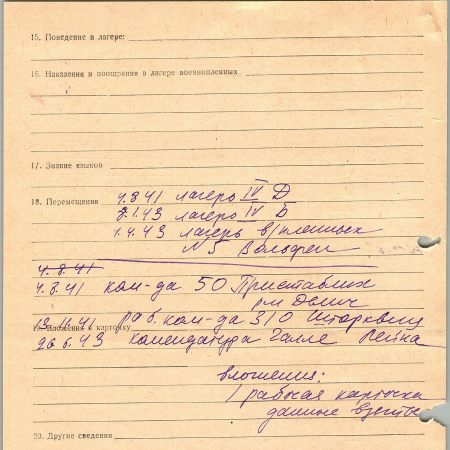 15. Поведение в лагере:
16. Наказания и поощрения в лагере военнопленных
17. Знание языков
18. Перемещения 4.8.41 лагерь IV Д
8.1.43 лагерь IV Б
1.4.43 лагерь в/пленных
N5 Вольфен
4.8.41
4.8.41 ком-да 50 Приставлих
рм Делич
19.11.41 раб. ком-да 310 Шторквиц
19. Вложения в карточку
26.6.43 комендатура Галле Рейна
вложения:
1 рабочая карточка
данные взяты
20. Другие сведения